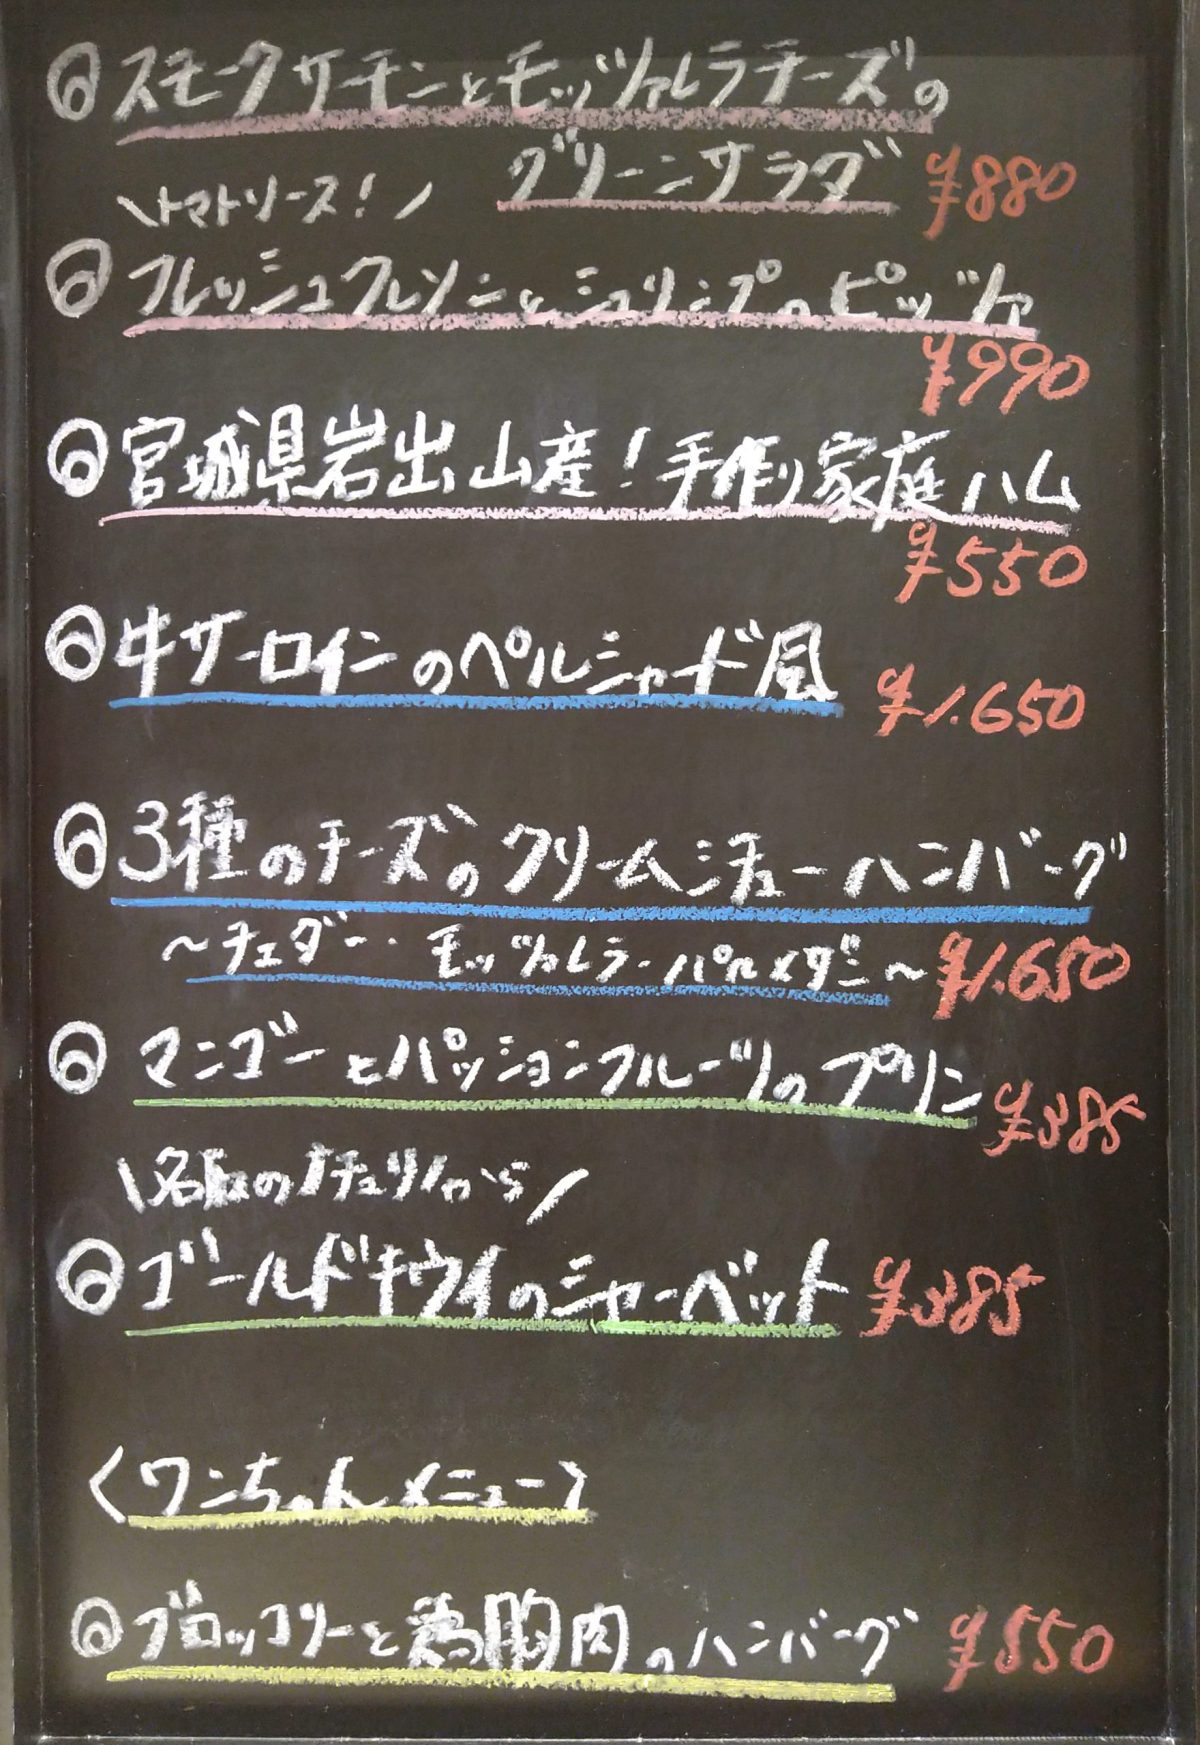 ◎スモークサーモンとモッツァレラチーズの
グリーンサラダ ¥880
\トマトソース!/
◎フレッシュクレソンとシュリンプのピッツァ
¥990
◎宮城県岩出山産!手作り家庭ハム
¥550
◎牛サーロインのペルシャード風 ¥1.650
◎3種のチーズのクリームシチューハンバーグ
~チェダー・モッツァレラ・パルメザン~ ¥1.650
◎マンゴーとパッションフルーツのプリン ¥385
\名取のナチュリノから/
◎ゴールドキウイのシャーベット ¥385
〈ワンちゃんメニュー〉
◎ブロッコリーと鶏胸肉のハンバーグ ¥550